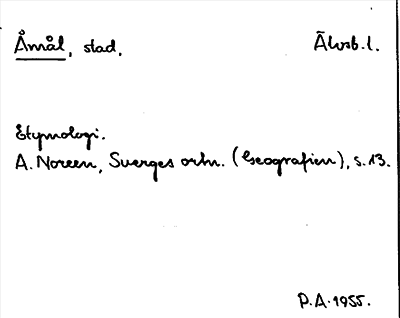 Åmål, stad. Älvsb.l.
Etymologi.
A. Noreen, Sverges ortn. (Geografien), s.13.
P.A. 1955.